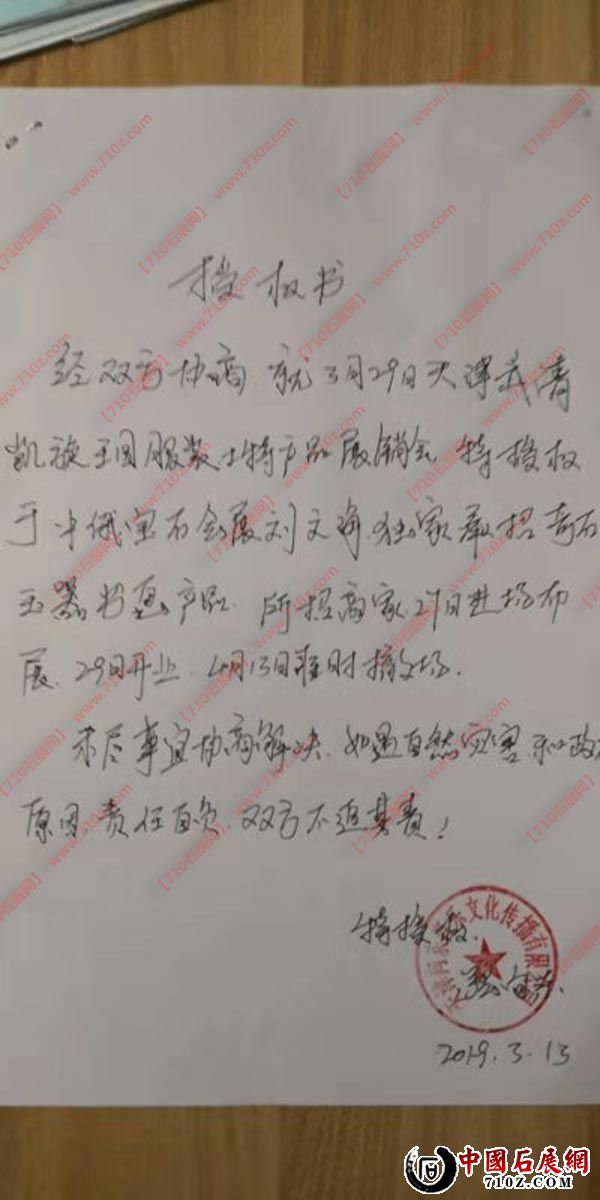 授权书
经双方协商 就3月29日天津武清
凯旋王国服装土特产品展销会, 特授权
于中俄宝石会展刘文海独家承招奇石
玉器书画产品. 所招商家27日进场布
展. 29日开业. 4月15日准时撤场.
未尽事宜协商解决. 如遇自然灾害和政
原因, 责任自负. 双方不追其责!
特授权.
文化传播有限
2019.3.13
【710石展网】 www.710z.com
中國石展網
710Z.COM